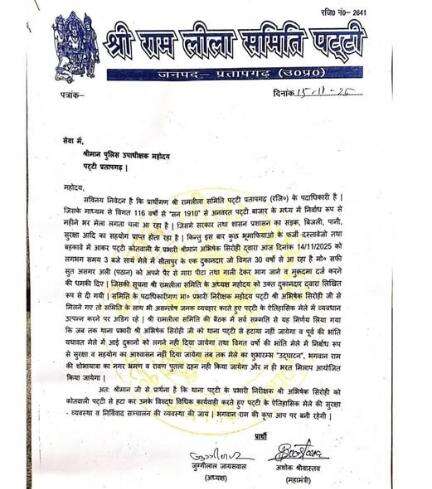 रजि0 नं0- 2641
श्री राम लीला समिति पट्टी
जनपद- प्रतापगढ़ (उ०प्र०)
पत्रांक-
दिनांक 15-11-25
सेवा में,
श्रीमान पुलिस उपाधीक्षक महोदय
पट्टी प्रतापगढ़।
महोदय,
सविनय निवेदन है कि प्रार्थीगण श्री रामलीला समिति पट्टी प्रतापगढ़ (रजि०) के पदाधिकारी है।
जिसके माध्यम से विगत 116 वर्षों से "सन 1910" से अनवरत पट्टी बाजार के मध्य में निर्बाध रूप से
महीने भर मेला चलता चला आ रहा है। जिसमें सरकार तथा शासन प्रशासन का सड़क, बिजली, पानी,
सुरक्षा आदि का सहयोग प्राप्त होता रहा है। किन्तु इस बार कुछ भूमाफियाओं के फर्जी दस्तावेजो तथा
बहकावे में आकर पट्टी कोतवाली के प्रभारी श्रीमान अभिषेक सिरोही द्वारा आज दिनांक 14/11/2025 को
लगभग समय 3 बजे सायं मेले में सीतापुर के एक दुकानदार जो विगत 30 वर्षों से आ रहा है मो० सफी
सुत असगर अली (पठान) को अपने पैर से मारा पीटा तथा गाली देकर भाग जाने व मुकदमा दर्ज करने
की धमकी दिए। जिसकी सूचना श्री रामलीला समिति के अध्यक्ष महोदय को उक्त दुकानदार द्वारा लिखित
रूप से दी गयी। समिति के पदाधिकारीगण मा० प्रभारी निरीक्षक महोदय पट्टी श्री अभिषेक सिरोही जी से
मिलने गए तो समिति के साथ भी असन्तोष जनक व्यवहार करते हुए पट्टी के ऐतिहासिक मेले में व्यवधान
उत्पन्न करने पर अडिग रहे। श्री रामलीला समिति की बैठक में सर्व सम्मति से यह निर्णय लिया गया
कि जब तक थाना प्रभारी श्री अभिषेक सिरोही जी को थाना पट्टी से हटाया नहीं जायेगा व पूर्व की भांति
यथावत मेले में आई दुकानों को लगने नही दिया जायेगा तथा विगत वर्षों की भांति मेले में निर्बाध रूप
से सुरक्षा व सहयोग का आश्वासन नहीं दिया जायेगा तब तक मेले का शुभारम्भ "उद्घाटन", भगवान राम
की शोभायात्रा का नगर भ्रमण व रावण पुतला दहन नही किया जायेगा और न ही भरत मिलाप आयोजित
किया जायेगा।
अतः श्रीमान जी से प्रार्थना है कि थाना पट्टी के प्रभारी निरीक्षक श्री अभिषेक सिरोही को
कोतवाली पट्टी से हटा कर उनके विरुद्ध विधिक कार्यवाही करते हुए पट्टी के ऐतिहासिक मेले की सुरक्षा
- व्यवस्था व निर्विवाद सम्पालन की व्यवस्था की जाय। भगवान राम की कृपा आप पर बनी रहेगी।
प्रार्थी
जुग्गीलाल जायसवाल
(अध्यक्ष)
अशोक श्रीवास्तव
(महामंत्री)